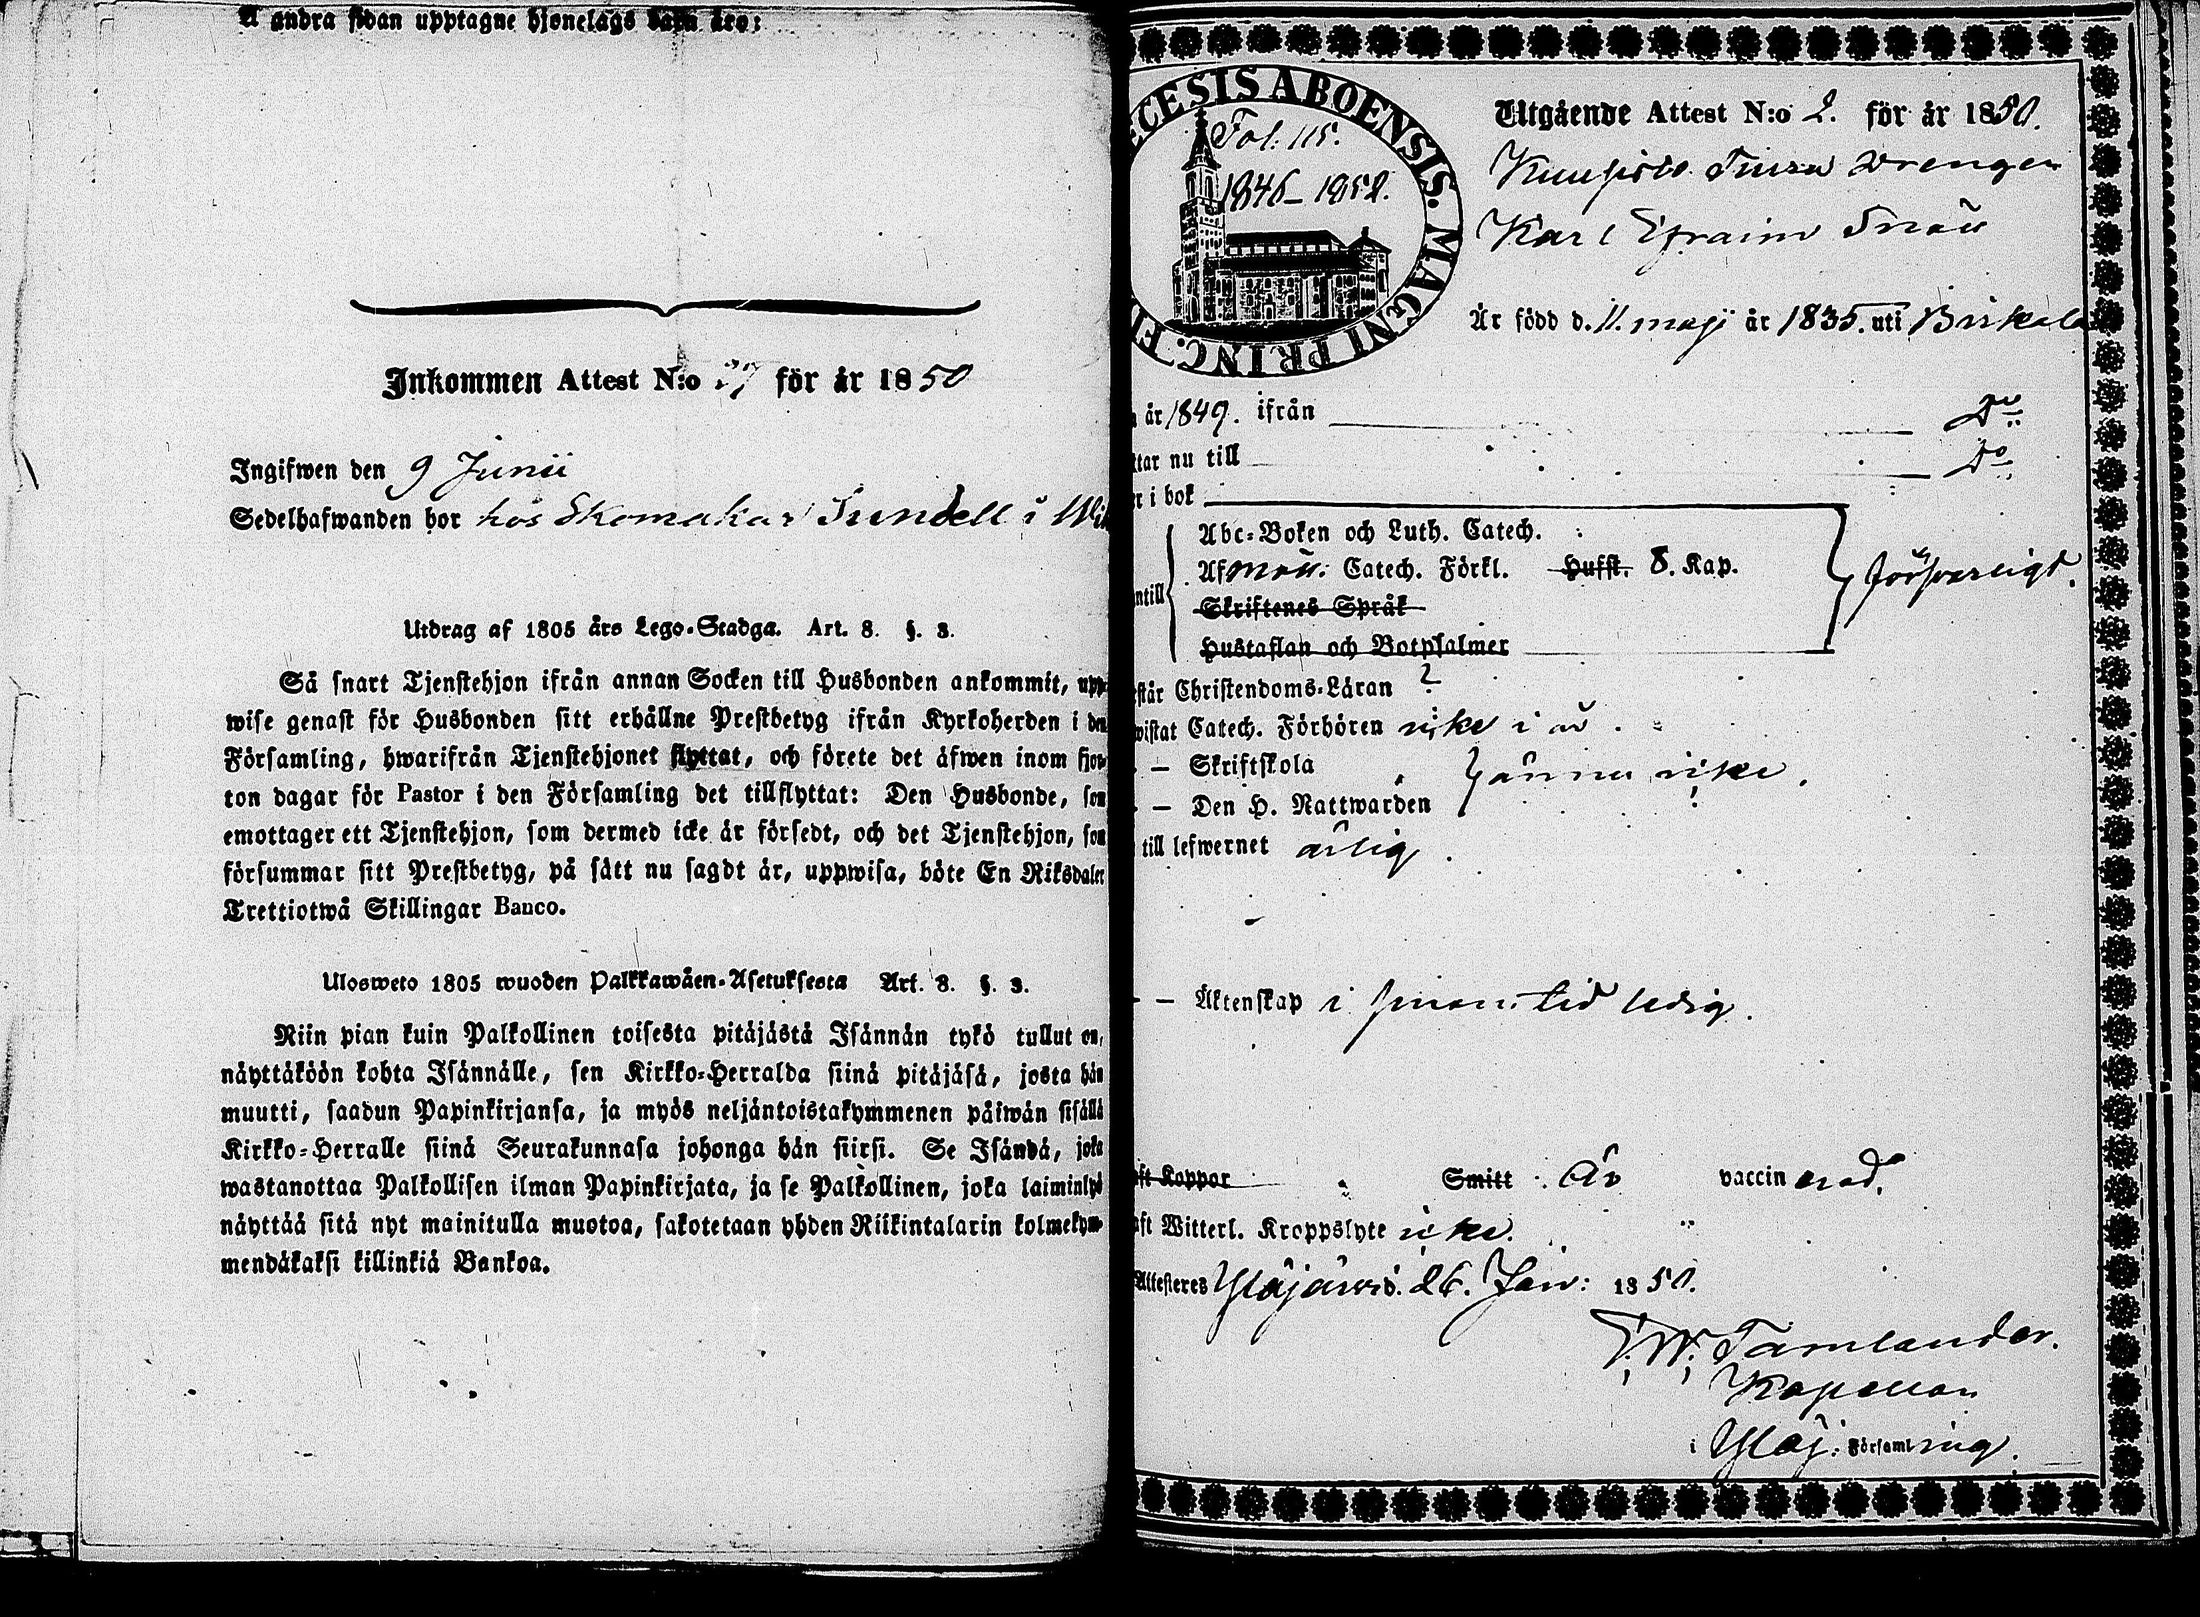 Å andra sidan upptagne hjonelags barn äro:
Inkommen Attest N:o 27 för år 1850
Ingifwen den 9 Junii
Sedelhafwanden bor hos Skomakar Sundell i
Utdrag af 1805 års Lego-Stadga. Art. 8. §. 3.
Så snart Tjenstehjon ifrån annan Socken till Husbonden ankommit, upp-
wise genast för Husbonden sitt erhållne Prestbetyg ifrån Kyrkoherden i den
Församling, hwarifrån Tjenstehjonet flyttat, och förete det äfwen inom fjor-
ton dagar för Pastor i den Församling det tillflyttat: Den Husbonde, som
emottager ett Tjenstehjon, som dermed icke är försedt, och det Tjenstehjon, som
försummar sitt Prestbetyg, på sätt nu sagdt är, uppwisa, böte En Riksdaler
Trettiotwå Skillingar Banco.
Ulosweto 1805 wuoden Palkkawäen-Asetuksesta Art. 8. §. 3.
Niin pian kuin Palkollinen toisesta pitäjästä Isännän tykö tullut on,
näyttäköön kohta Isännälle, sen Kirkko-Herralda siinä pitäjäsä, josta hän
muutti, saadun Papinkirjansa, ja myös neljäntoistakymmenen päiwän sisällä
Kirkko-Herralle siinä Seurakunnasa johonga hän siirsi. Se Isändä, joka
wastanottaa Palkollisen ilman Papinkirjata, ja se Palkollinen, joka laiminlyö
näyttää sitä nyt mainitulla muotoa, sakotetaan yhden Riikintalarin kolmekym-
mendäkaksi killinkiä Bankoa.
ECESIS ABOENSIS. MAGNI PRINC. F
Fol. 115.
1846-1852.
Utgående Attest N:o 2. för år 1850.
drengen
Karl Efraim
Är född d. 11. maji år 1835. uti Birkala
år 1849. ifrån Do
ttar nu till Do
r i bok
Abc-Boken och Luth. Catech.
ntill Af Catech. Förkl. Hufst. 8. Kap. försvarligt.
Skriftenes Språk
Hustaflan och Botpsalmer
står Christendoms-Läran ?
wistat Catech. Förhören icke i år.
— Skriftskola
ännu icke.
— Den H. Nattwarden
till lefwernet ärlig.
— Äktenskap i sinom tid ledig.
ft Koppor Smitt Är vaccinerad.
ft Witterl. Kroppslyte icke.
Attesteres Ylöjärwi d. 26. Jan: 1850.
Tamlander.
Kapellan
i Ylöj. Församling.